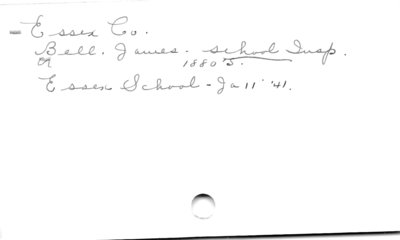 = Essex Co.
Bell. James. school Insp.
1880's.
Essex School - Ja 11 '41.